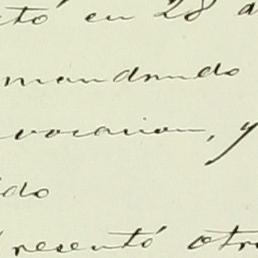 tó en 28 d
mandando
vocacion, y
ido
resentó otro